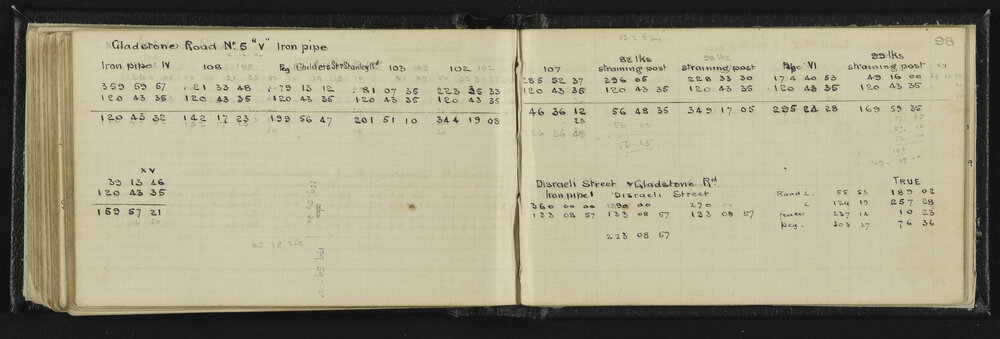 Gladstone Road No 5 "V" Iron pipe
Iron pipe IV 108 Peg (Childers St & Stanley Rd 103 102
359 59 57 21 33 48 79 13 12 81 07 35 223 35 33
120 43 35 120 43 35 120 43 35 120 43 35 120 43 35
120 43 32 142 17 23 199 56 47 201 51 10 344 19 08
XV
39 13 46
120 43 35
159 57 21
98
107 82 lks straining post 98 lks straining post Pipe VI 99 lks straining post
285 52 37 296 05 228 33 30 174 40 53 49 16 00
120 43 35 120 43 35 120 43 35 120 43 35 120 43 35
46 36 12 56 48 35 349 17 05 295 24 28 169 59 35
23
56 45
Disraeli Street & Gladstone Rd
TRUE
Iron pipe 1 Disraeli Street Road L. 55 53 189 02
360 00 00 90 00 270 00 L 124 19 257 28
133 08 57 133 08 57 133 08 57 fence 237 14 10 23
Peg. 303 27 76 36
223 08 57